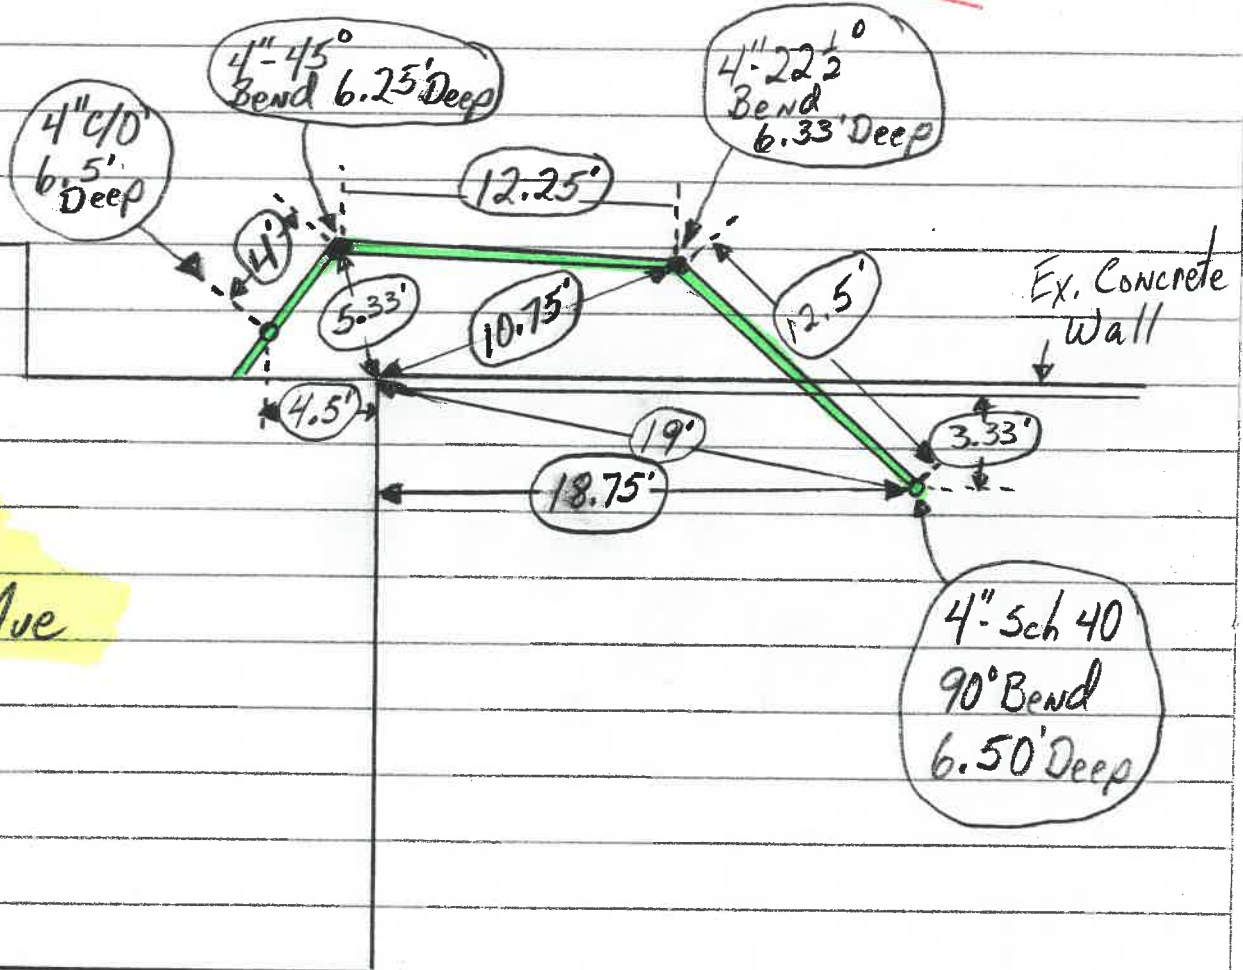 4"-45°
Bend 6.25' Deep
4"-22 1/2°
Bend
6.33' Deep
4" C/O
6.5'
Deep
12.25'
4'
5.33'
10.75'
12.5'
Ex. Concrete
Wall
4.5'
19'
3.33'
18.75'
4"-Sch 40
90° Bend
6.50' Deep
Ave